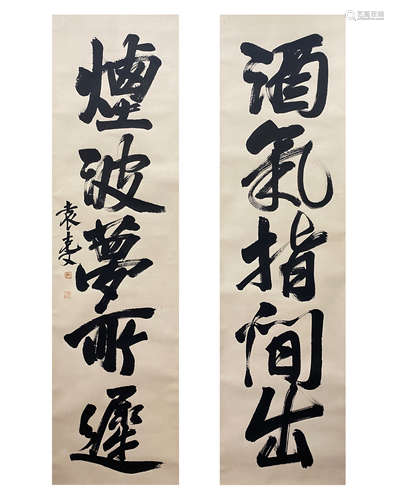 酒氣指間出
煙波夢所遲
袁克文